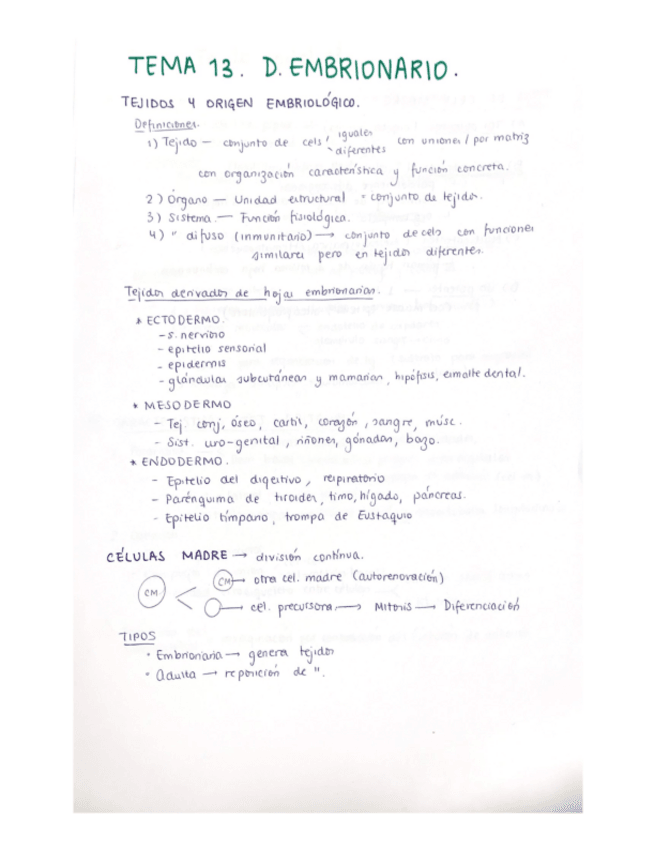 TEMA 13. D. EMBRIONARIO.
TEJIDOS Y ORIGEN EMBRIOLÓGICO.
Definiciones.
1) Tejido — conjunto de cels iguales diferentes con uniones / por matriz
con organización característica y función concreta.
2) Órgano — Unidad estructural = conjunto de tejidos.
3) Sistema. — Función fisiológica.
4) " difuso (inmunitario) → conjunto de cels con funciones
similares pero en tejidos diferentes.
Tejidos derivados de hojas embrionarias.
* ECTODERMO.
- s. nervioso
- epitelio sensorial
- epidermis
- glándulas subcutáneas y mamarias, hipófisis, esmalte dental.
* MESODERMO
- Tej. conj, óseo, cartil, corazón, sangre, músc.
- Sist. uro-genital, riñones, gónadas, bazo.
* ENDODERMO.
- Epitelio del digestivo, respiratorio
- Parénquima de tiroides, timo, hígado, páncreas.
- Epitelio tímpano, trompa de Eustaquio
CÉLULAS MADRE → división contínua.
CM
CM → otra cel. madre (autorenovación)
→ cel. precursora → Mitosis → Diferenciación
TIPOS
· Embrionaria → genera tejidos
· Adulta → reposición de ".